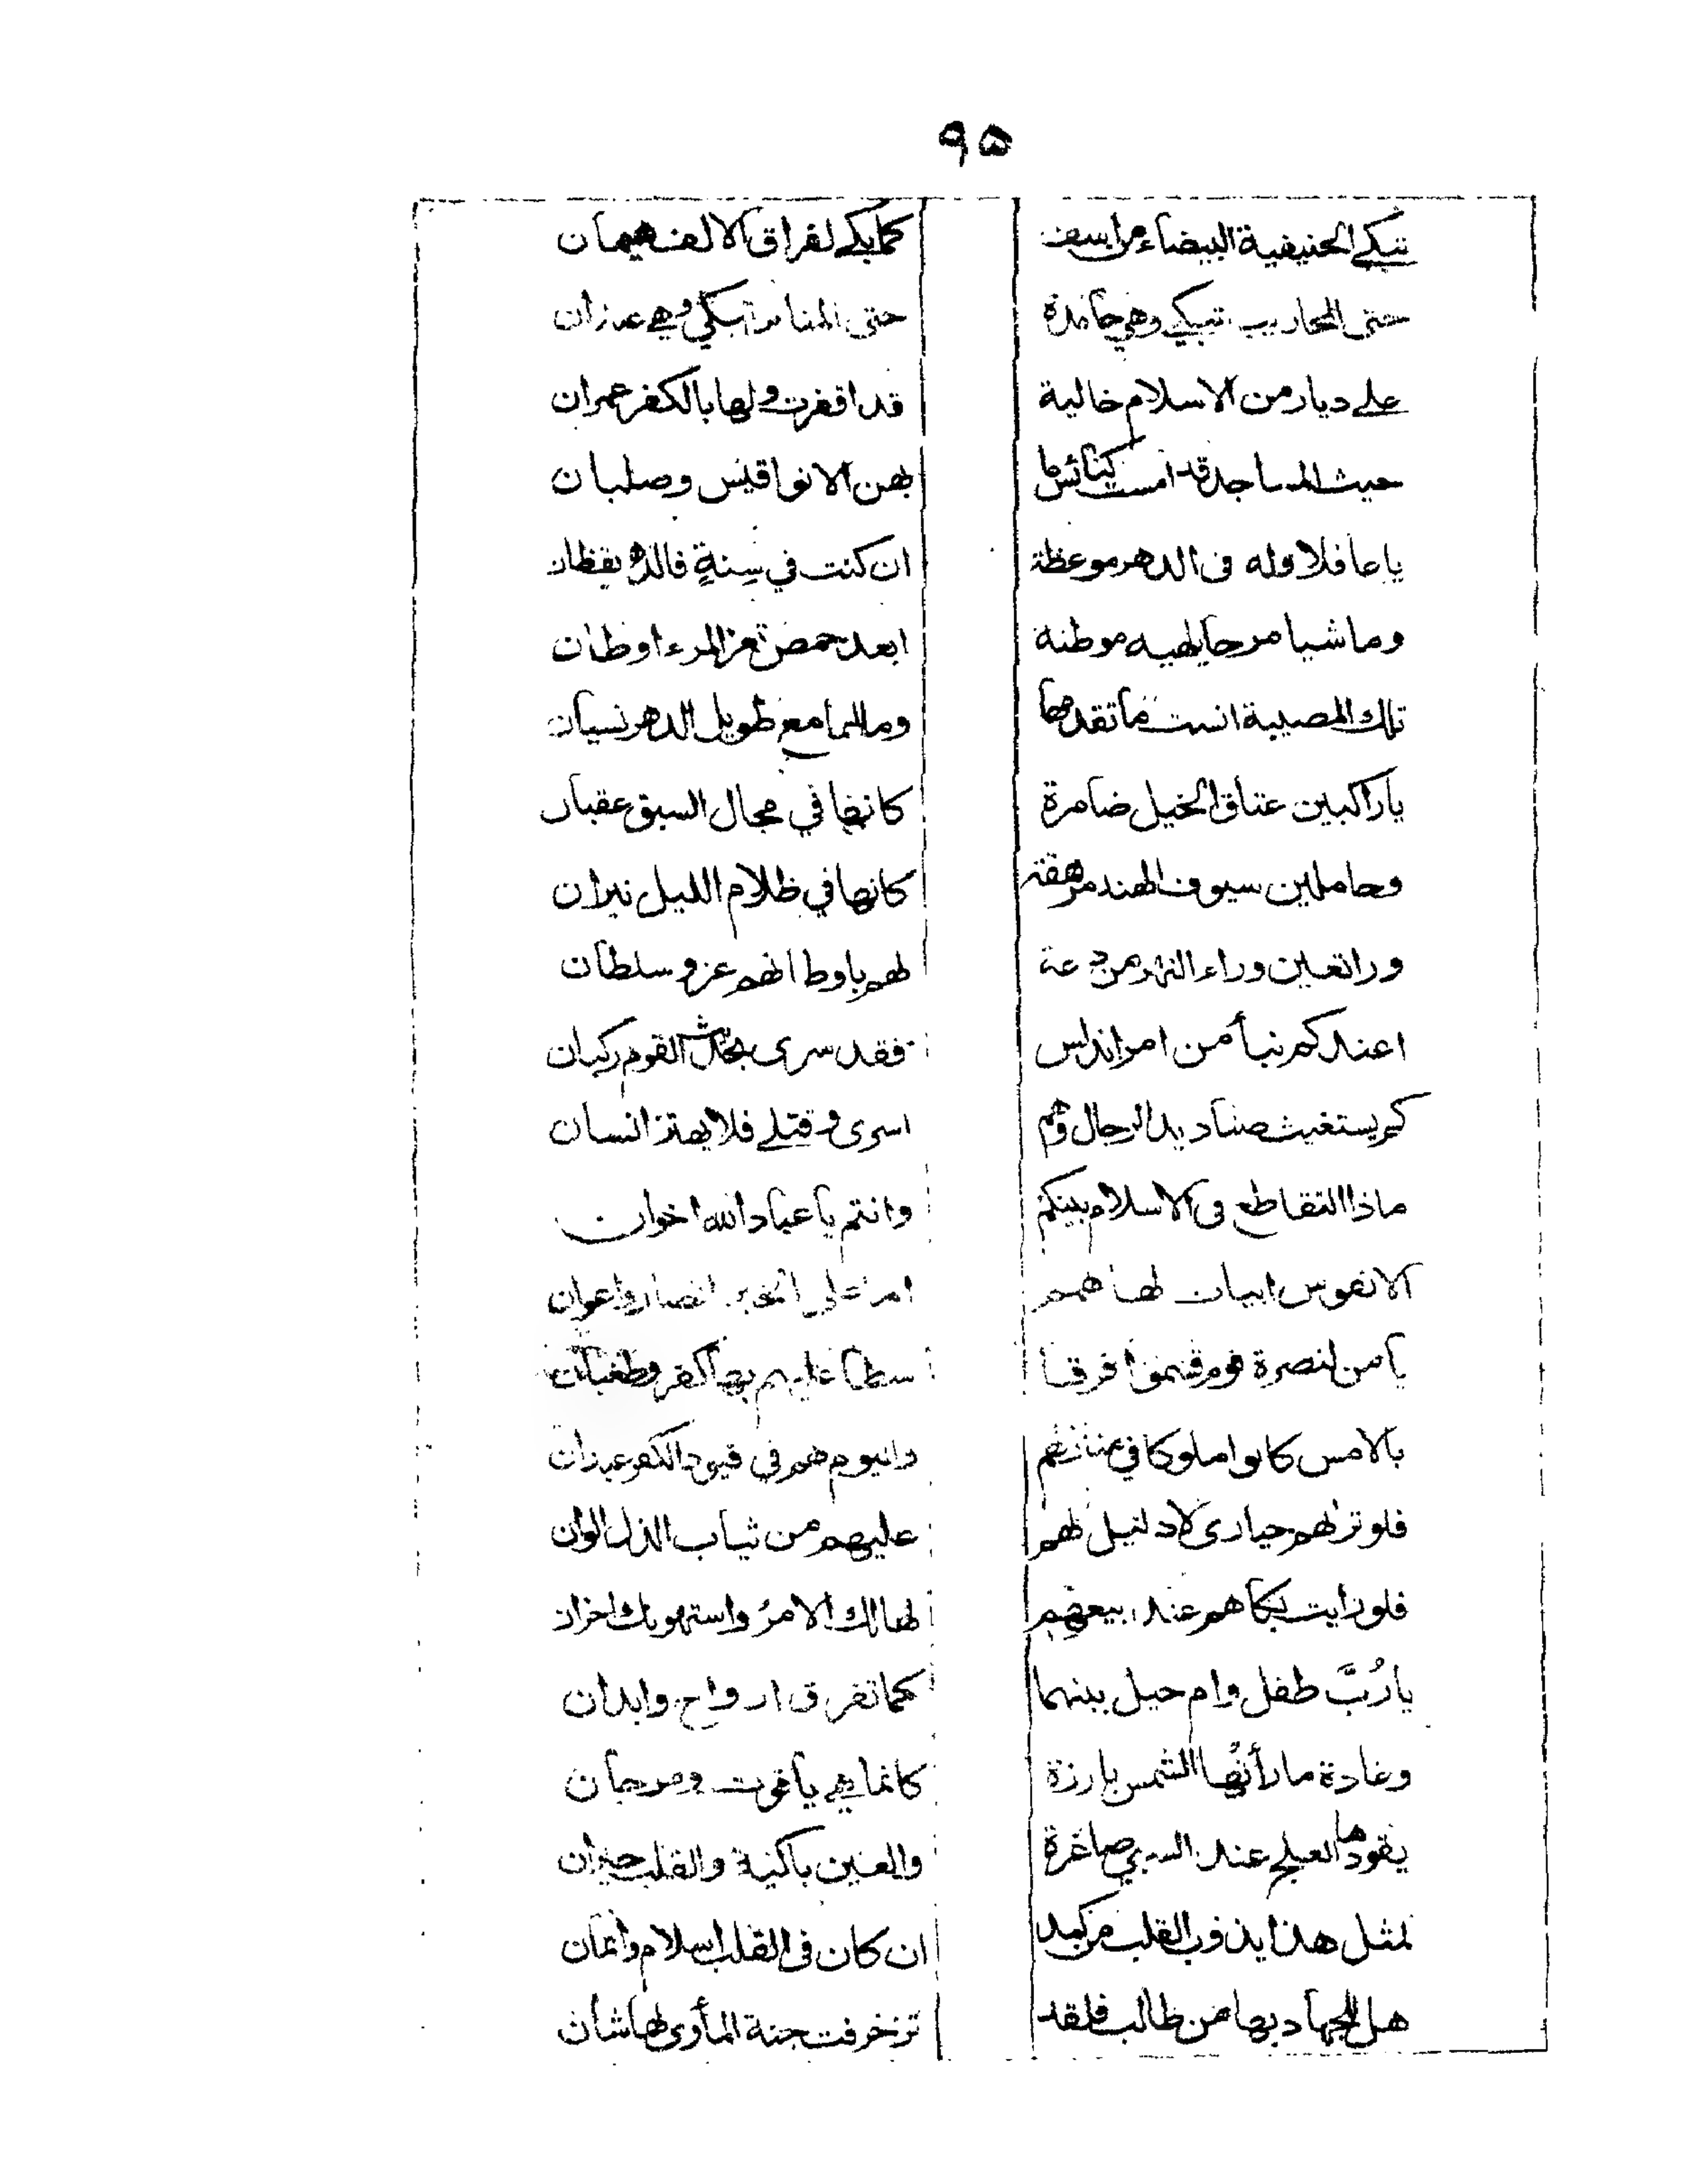 ٩٥
تبكي الحنيفية البيضاء من اسف كما بكے لفراق الالف هيمان
حتى المحاريب تبكي وهي جامدة حتى المنابر تبكي وهي عيدان
علے ديار من الاسلام خالية قد اقفرت ولها بالكفر عمران
حيث المساجد قد امست كنائس ما بهن الا نواقيس وصلبان
يا غافلا وله فى الدهر موعظة ان كنت في سِنةٍ فالدهر يقظان
وما شيا مرحا يلهيه موطنة ابعد حمص تغر المرء اوطان
تلك المصيبة انست ما تقدمها وما لها مع طويل الدهر نسيان
يا راكبين عتاق الخيل ضامرة كانها في مجال السبق عقبان
وحاملين سيوف الهند مرهفة كانها في ظلام الليل نيران
وراتعين وراء النهر من دعة لهم باوطانهم عز وسلطان
اعندكم نبأ من امر اندلس فقد سرى بحديث القوم ركبان
كم يستغيث صناديد الرجال وهم اسرى وقتلے فلا يهتز انسان
ماذا التقاطع فى الاسلام بينكم وانتم يا عباد الله اخوان
الا نفوس ابيات لها همم اما على الخير انصار واعوان
يا من لنصرة قوم قسموا فرقا سطا عليهم بها كفر وطغيان
بالامس كانوا ملوكا في منازلهم واليوم هم في قيود الكفر عبدان
فلو تراهم حيارى لا دليل لهم عليهم من ثياب الذل الوان
فلو رايت بكاهم عند بيعهم لهالك الامرُ واستهوتك احزان
يا رُبَّ طفل وام حيل بينهما كما تفرق ارواح وابدان
وغادة ما رأتها الشمس بارزة كانما هي ياقوت ومرجان
يقودها العلج عند السبي صاغرة والعين باكية والقلب حيران
لمثل هذا يذوب القلب من كمد ان كان فى القلب اسلام وايمان
هل للجهاد بها من طالب فلقد تزخرفت جنة المأوى لها شان